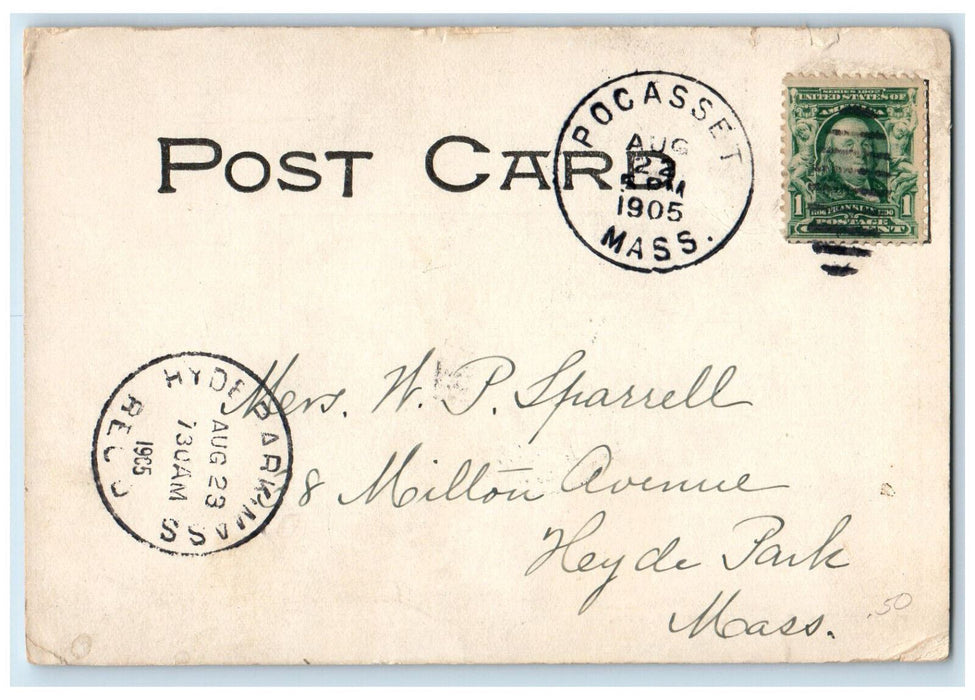 POST CARD
POCASSET
AUG
22
5 PM
1905
MASS.
SERIES 1902
UNITED STATES OF
AMERICA
1 FRANKLIN 1
POSTAGE
HYDE PARK, MASS
AUG 23
730AM
1905
REC'D
Mrs. W. P. Sparrell
8 Milton Avenue
Hyde Park
Mass.
.50